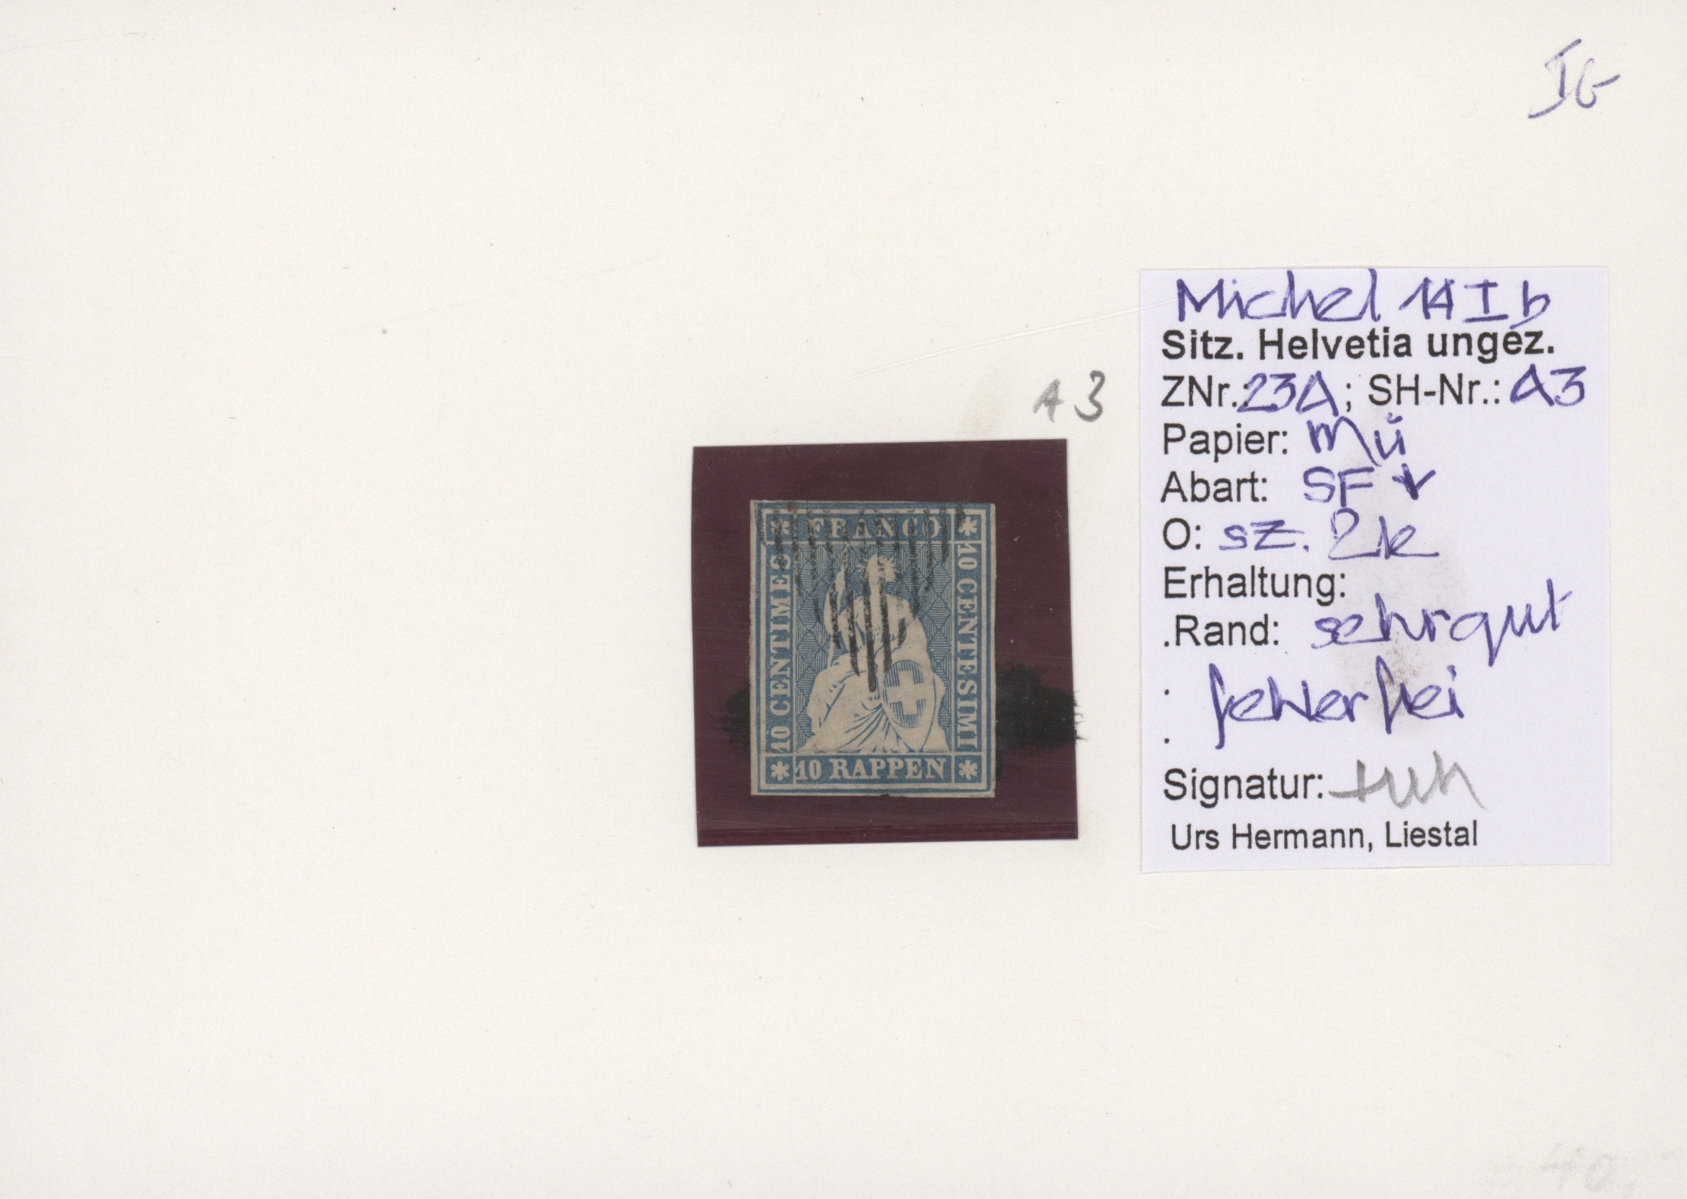 A3
FRANCO
10 CENTIMES
10 CENTESIMI
10 RAPPEN
Michel 14 I b
Sitz. Helvetia ungez.
ZNr.: 23A; SH-Nr.: A3
Papier: Mü
Abart: SF
O: sz.
Erhaltung:
.Rand: sehr gut
. fehlerfrei
.
Signatur:
Urs Hermann, Liestal